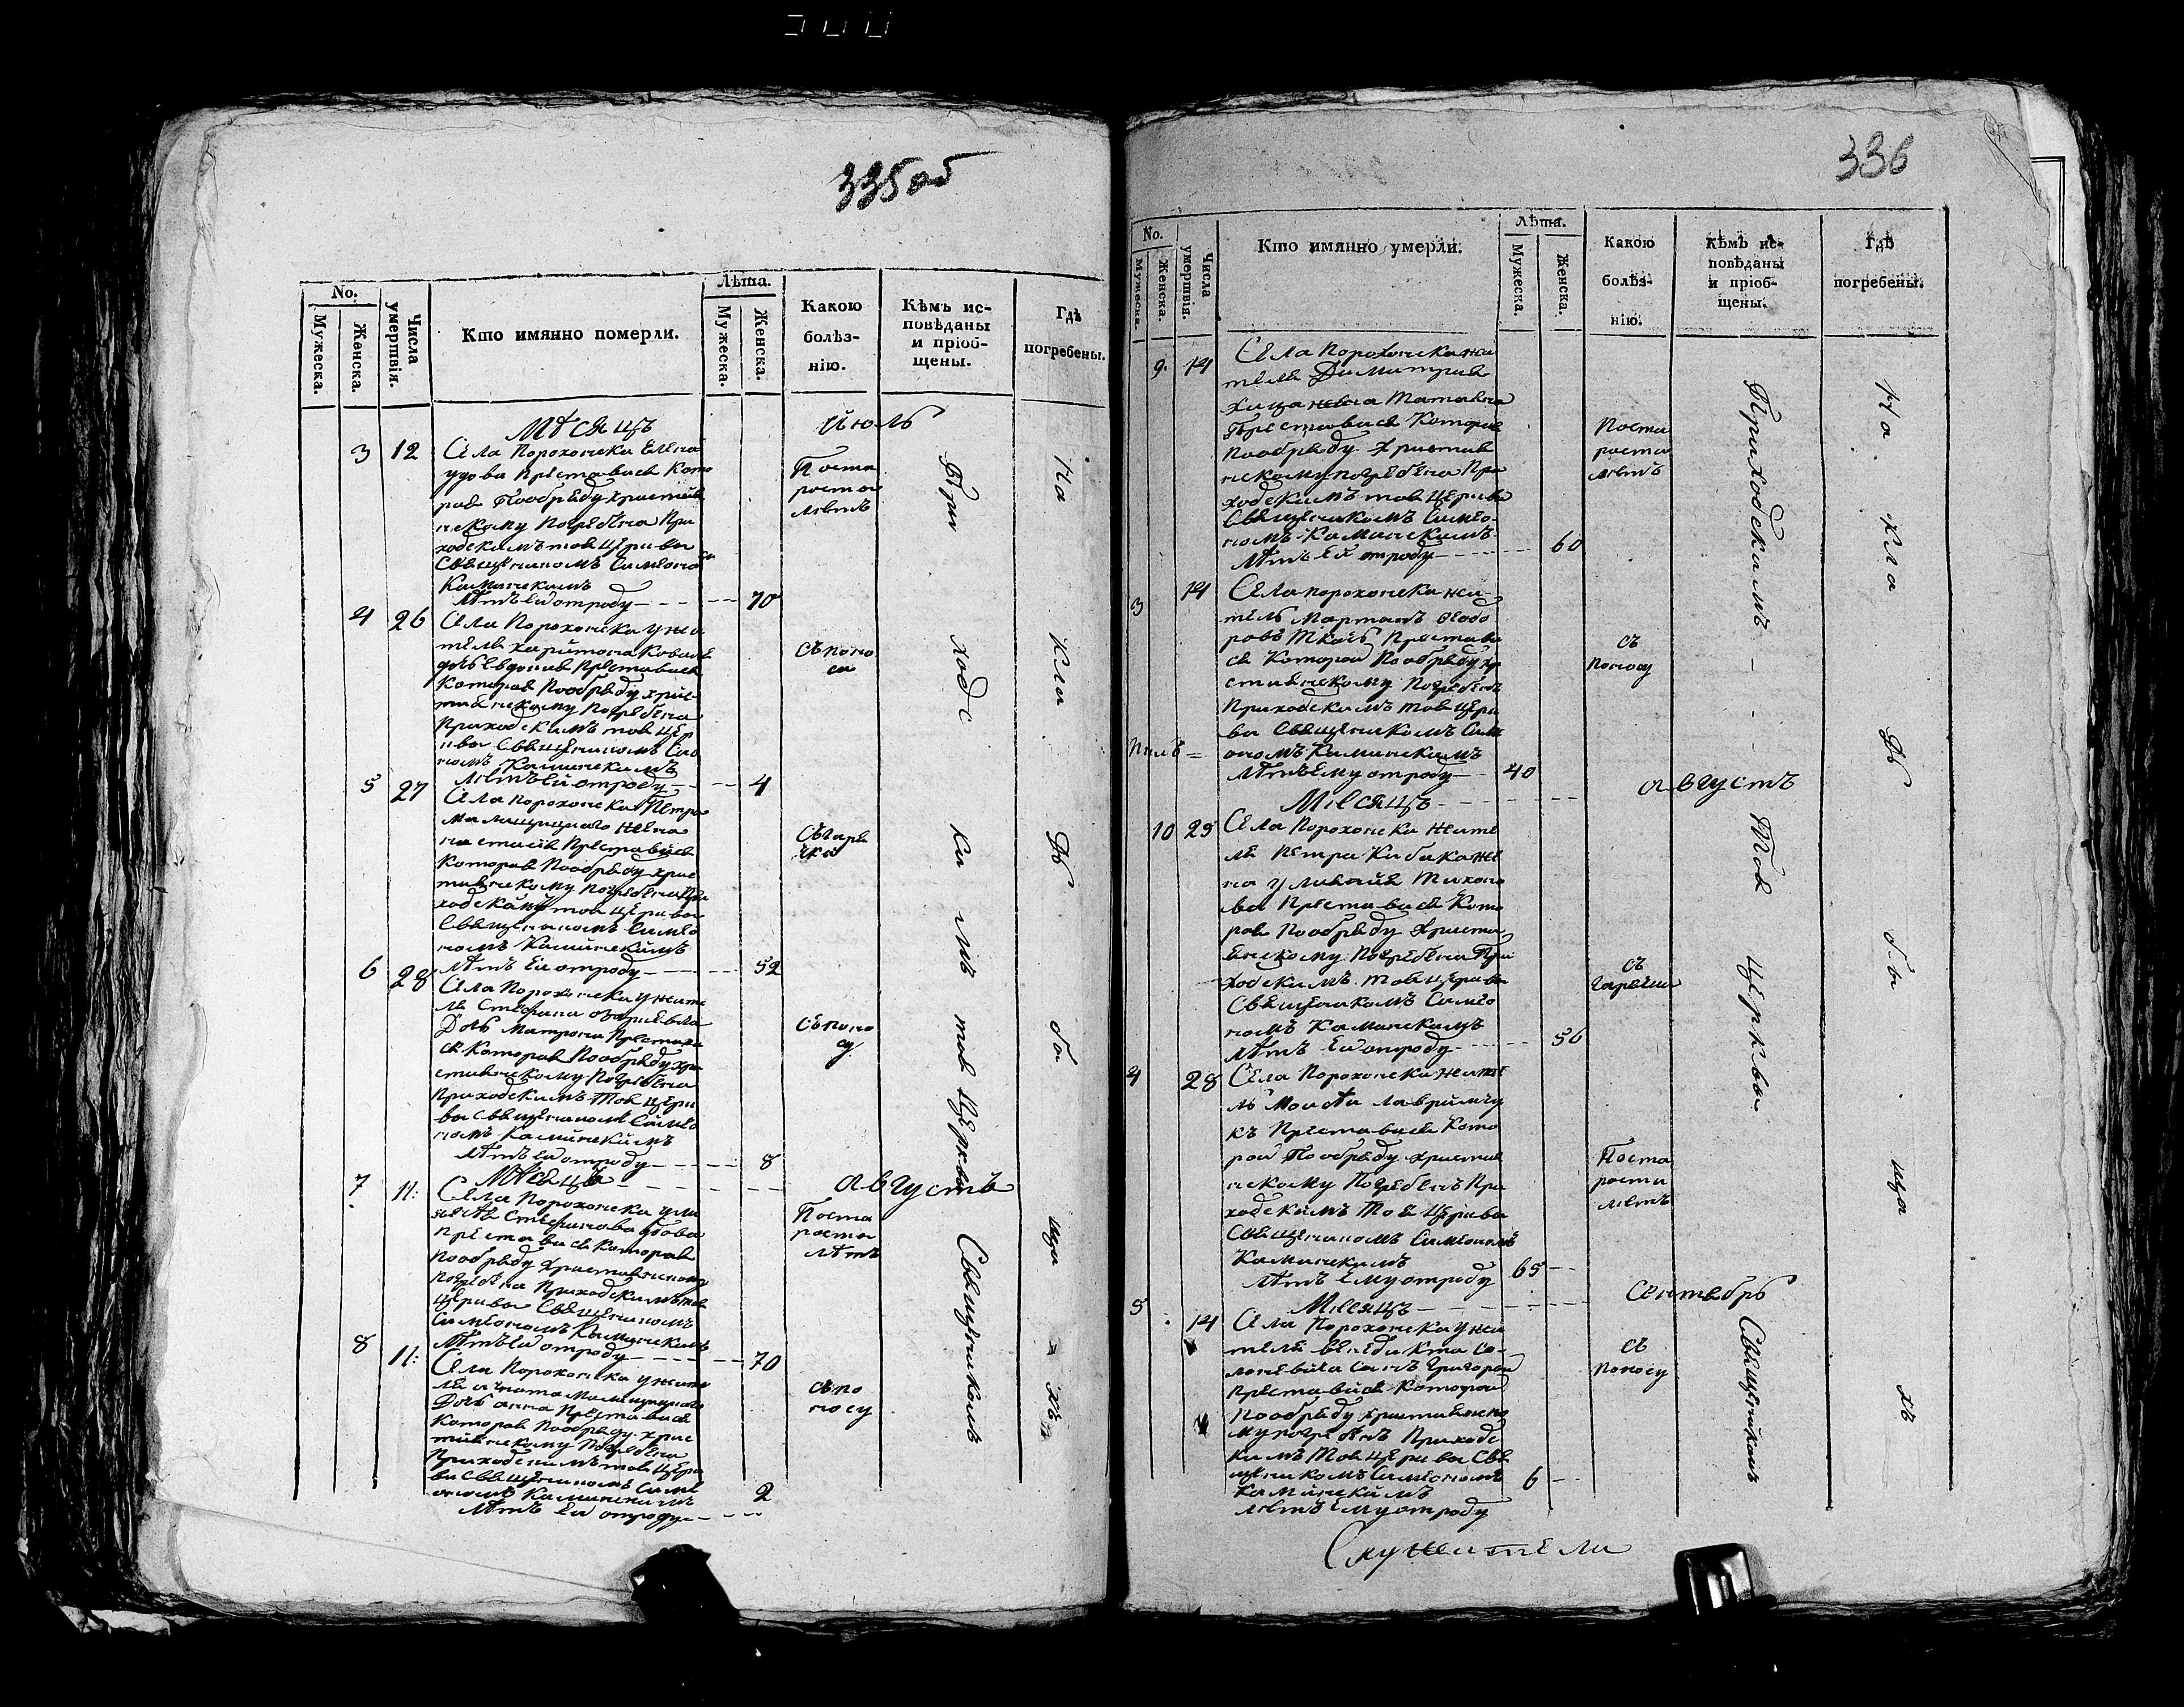 335 об
No.
Мужеска.
Женска.
Числа умертвія.
Кто имянно померли.
Лѣта.
Мужеска.
Женска.
Какою
болѣз-
нію.
Кѣмъ ис-
повѣданы
и пріоб-
щены.
Гдѣ
погребены.
Мѣсяцъ Июль
3 12 Села Порохонска Елена
удова Преставися Кото
рая Пообряду христия
нскому Погребена При
ходскимъ тоя церкви
Священикомъ Симеоно
Каминскимъ
Лѣтъ ей отроду 70
Поста
рости
лѣтъ
4 26 Села Порохонска у жи
теля харитона Ковал
дочь Евдокия Преставися
Которая Пообряду хрис
тиянскому Погребена
Приходскимъ тоя цер
кви Священикомъ Сим
номъ Каминскимъ
лѣтъ ей отроду 4
съ поно
са
5 27 Села Порохонска Петра
жена
настасия Преставися
Которая Пообряду хрис
тиянскому Погребена При
ходскимъ тоя церкви
Священикомъ Симео
номъ Каминскимъ
Лѣтъ ей отроду 52
съ гаря
чки
6 28 Села Порохонска у жите
ля Стефана
Дочь Матрона Престави
ся Которая Пообряду хри
стиянскому Погребена
Приходскимъ Тоя церк
ви Священикомъ Симео
номъ Каминскимъ
Лѣтъ ей отроду 8
съ поно
су
Мѣсяцъ августъ
7 11: Села Порохонска
Стефанова вдова
Преставися Которая
Пообряду Християнскому
Погребена Приходскимъ тоя
церкви Священикомъ
Симеономъ Каминскимъ
Лѣтъ ей отроду 70
Поста
рости
лѣтъ
8 11: Села Порохонска у жите
ля
Дочь анна Преставися
Которая Пообряду хрис
тиянскому Погребена
Приходскимъ тоя церк
ви Священикомъ Симе
ономъ Каминскимъ
Лѣтъ ей отроду 2
съ по
носу
Приходскимъ тоя Церкви Священикомъ
На Кладбищахъ
336
No.
Мужеска.
Женска.
Числа умертвія.
Кто имянно умерли.
Лѣта.
Мужеска.
Женска.
Какою
болѣз-
нію.
Кѣмъ ис-
повѣданы
и пріоб-
щены.
Гдѣ
погребены.
9. 14 Села Порохонска жи
теля Димитрия
жена Татияна
Преставися Которая
Пообряду Христия
нскому погребена При
ходскимъ тоя Церкви
Священикомъ Симео-
номъ Каминскимъ
Лѣтъ ей отроду 60
Поста
рости
лѣтъ
3 14 Села порохонска жи-
тель Мартинъ Феодо
ровъ Ткачъ Преставы
ся Которой Пообряду хр
стиянскому Погребенъ
Приходскимъ тоя церк
ви Священикомъ Симе
ономъ Каминскимъ
Лѣтъ Ему отроду 40
съ
поносу
Мѣсяцъ августъ
10 25 Села Порохонска жите
ля Петра Кибика же
на Улияния Тихоно
ва Преставися Кото
рая Пообряду Христи
янскому Погребена При
ходскимъ тоя церкви
Священикомъ Симео
номъ Каминскимъ
Лѣтъ ей отроду 56
съ
гарячки
4 28 Села Порохонска жите
ль Моисѣи Лавримчу
къ Преставися Кото
рои Пообряду христия
нскому Погребенъ При
ходскимъ Тоя Церкви
Священикомъ Симеономъ
Каминскимъ
Лѣтъ Ему отроду 65
Поста
рости
лѣтъ
Мѣсяцъ Сентябръ
5 14 Села Порохонска у жи
теля Венедикта Со-
ловевича Синъ Григорои
Преставися Которои
Пообряду християнско
му погребенъ Приходс
кимъ Тоя церкви Свя
щеникомъ Симеономъ
Каминскимъ
лѣтъ Ему отроду 6
съ
поносу
Приходскимъ Тоя Церкви Священикомъ
На Кладбищахъ
Служители